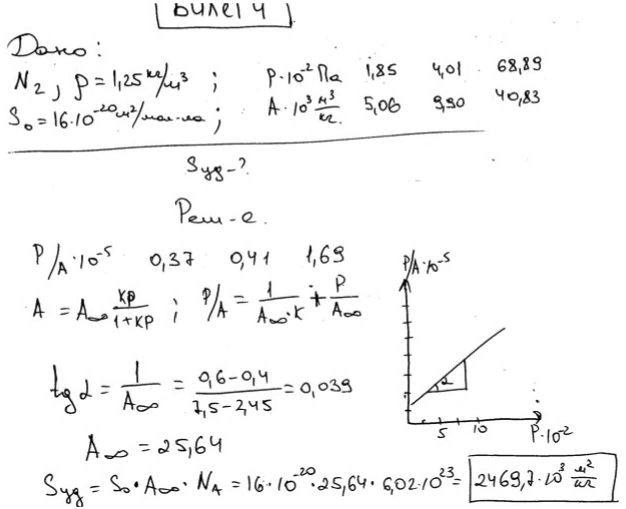 Билет 4
Дано:
N₂, ρ = 1,25 кг/м³ ; P·10⁻² Па 1,85 4,01 68,89
S₀ = 16·10⁻²⁰ м²/мол-ла ; A·10³ м³/кг. 5,06 9,90 40,83
Sуд - ?
Реш-е.
P/A·10⁻⁵ 0,37 0,41 1,69
A = A∞ KP/(1+KP) ; P/A = 1/(A∞·K) + P/A∞
P/A·10⁻⁵
tg α = 1/A∞ = (0,6-0,4)/(7,5-2,45) = 0,039
α
5 10 P·10⁻²
A∞ = 25,64
Sуд = S₀·A∞·N_A = 16·10⁻²⁰·25,64·6,02·10²³ = 2469,7·10³ м²/кг